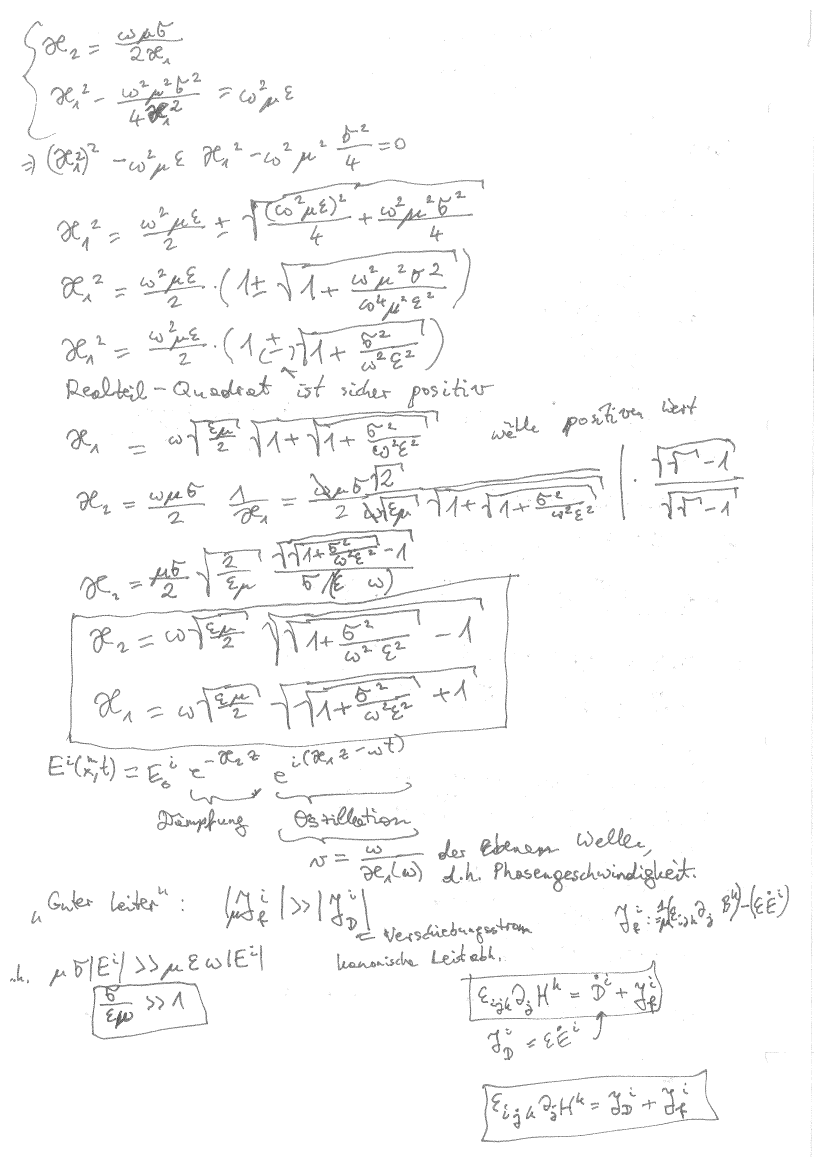 ϰ₂ = ωμσ / 2ϰ₁
ϰ₁² - ω²μ²σ² / 4ϰ₁² = ω²με
⇒ (ϰ₁²)² - ω²με ϰ₁² - ω²μ² σ²/4 = 0
ϰ₁² = ω²με/2 ± √((ω²με)²/4 + ω²μ²σ²/4)
ϰ₁² = ω²με/2 · (1 ± √(1 + ω²μ²σ2 / ω⁴μ²ε²))
ϰ₁² = ω²με/2 · (1 +(-) √(1 + σ²/ω²ε²))
Realteil-Quadrat ist sicher positiv
ϰ₁ = ω√(εμ/2) √(1 + √(1 + σ²/ω²ε²)) wähle positiven Wert
ϰ₂ = ωμσ/2 1/ϰ₁ = ωμσ√2 / 2 ω√(εμ) √(1 + √(1 + σ²/ω²ε²)) | · √(√ - 1) / √(√ - 1)
ϰ₂ = μσ/2 √(2/εμ) √(√(1 + σ²/ω²ε²) - 1) / σ/(ε ω)
ϰ₂ = ω√(εμ/2) √(√(1 + σ²/ω²ε²) - 1)
ϰ₁ = ω√(εμ/2) √(√(1 + σ²/ω²ε²) + 1)
Eⁱ(x,t) = E₀ⁱ e^(-ϰ₂z) e^(i(ϰ₁z - ωt))
Dämpfung Oszillation
v = ω/ϰ₁(ω) der Ebenen Welle,
d.h. Phasengeschwindigkeit.
„Guter Leiter": |μJ_fⁱ| >> |J_Dⁱ|
= Verschiebungsstrom
J_fⁱ := 1/μ(ε_ijk ∂_j Bᵏ) - (εĖⁱ)
d.h. μσ|Eⁱ| >> μεω|Eⁱ|
σ/εω >> 1
ε_ijk ∂_j Hᵏ = Ḋⁱ + J_fⁱ
J_Dⁱ = εĖⁱ
ε_ijk ∂_j Hᵏ = J_Dⁱ + J_fⁱ